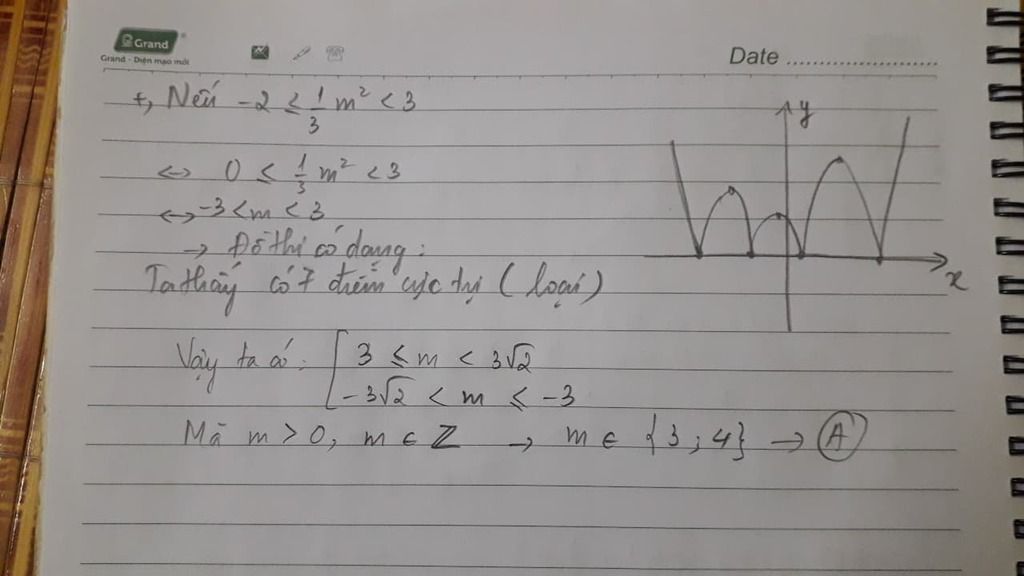 Grand
Grand - Diện mạo mới
Date
+, Nếu -2 ≤ 1/3 m² < 3
<-> 0 ≤ 1/3 m² < 3
<-> -3 < m < 3
-> Đồ thị có dạng:
Ta thấy có 7 điểm cực trị (loại)
y
x
Vậy ta có: [ 3 ≤ m < 3√2
-3√2 < m ≤ -3
Mà m > 0, m ∈ Z -> m ∈ {3; 4} -> A